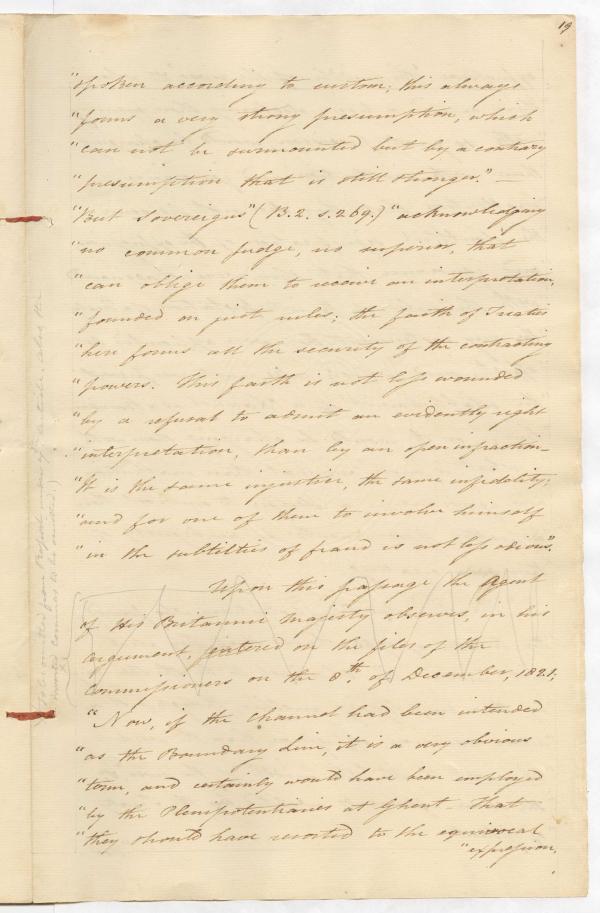 19
"spoken according to custom; this always
"forms a very strong presumption, which
"can not be surmounted but by a contrary
"presumption that is still stronger." —
"But Sovereigns" (B. 2. s. 269.) "acknowledging
"no common judge, no superior, that
"can oblige them to receive an interpretation,
"founded on just rules; the faith of Treaties
"here forms all the security of the contracting
"powers. This faith is not less wounded
"by a refusal to admit an evidently right
"interpretation, than by an open infraction—
"It is the same injustice, the same infidelity;
"and for one of them to involve himself
"in the subtilties of fraud is not less odious".
Upon this passage the Agent
of His Britannic Majesty observes, in his
argument, entered on the files of the
Commissioners on the 8th. of December, 1821,
"Now, if the Channel had been intended
"as the Boundary Line, it is a very obvious
"term, and certainly would have been employed
"by the Plenipotentiaries at Ghent— That
"they should have resorted to the equivocal
"expression,